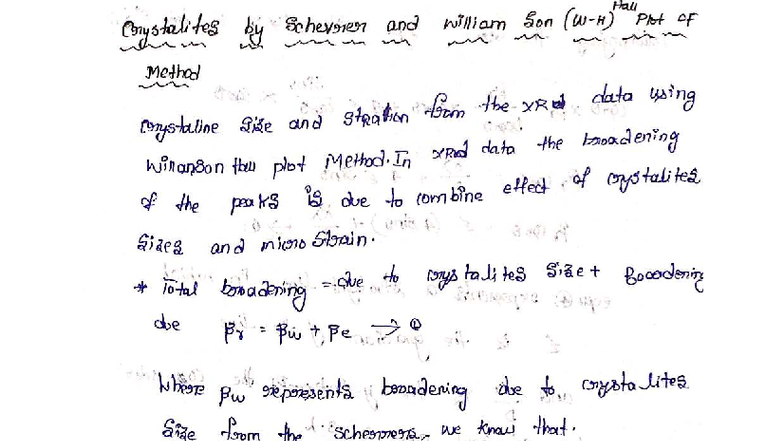 Crystalites by Scherrer and William Son (W-H) Hall Plot of
Method
Crystaline Size and Stration from the XRD data using
Wilianson Hall plot Method. In XRD data the broadening
of the peaks is due to combine effect of crystalites
Sizes and micro Strain.
* Total broadening = due to crystalites Size + Broadening
due βr = βw + βe → ①
Where βw represents broadening due to crystalites
Size from the scherrers, we know that.